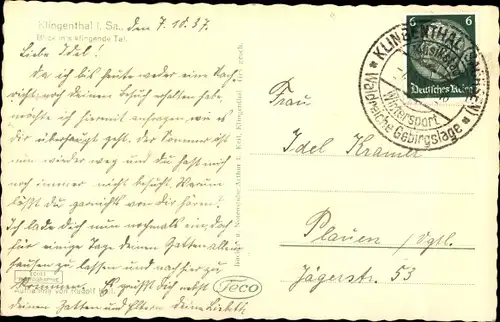 Klingenthal i. Sa., den 7.10.37.
Blick in's klingende Tal.
Liebe Idel!
Da ich bis heute weder eine Nach-
richt, noch deinen Besuch erhalten habe,
möchte ich hiermit anfragen wie es
dir überhaupt geht. Der Sommer ist
nun wieder weg und du hast mich
noch immer nicht besucht. Warum
läßt du garnichts von dir hören?
Ich lade dich nun nochmals ein, doch
für einige Tage deinen Gatten allein
hausen zu lassen und nachher zu
kommen. Es grüßt dich nebst
deinen Gatten und Eltern deine Liesbeth
ECHTE
PHOTOGRAPHIE
von Rudolf
Teco
KLINGENTHAL (SACHSEN)
Wintersport
Waldreiche Gebirgslage
6 6
Deutsches Reich
Frau
Idel Kramer
Plauen / Vgtl.
Jägerstr. 53